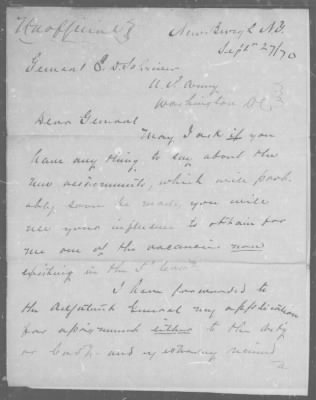 (Unofficial)
Newburgh N.Y.
Sept 27/70
General
U.S. Army
Washington D.C.
Dear General
May I ask if you
have any thing to say about the
new assignments, which will prob-
ably soon be made, you will
use your influence to obtain for
me one of the vacancies now
existing in the
I have forwarded to
the Adjutant General my application
for assignment either to the Arty
or Cavly and
a